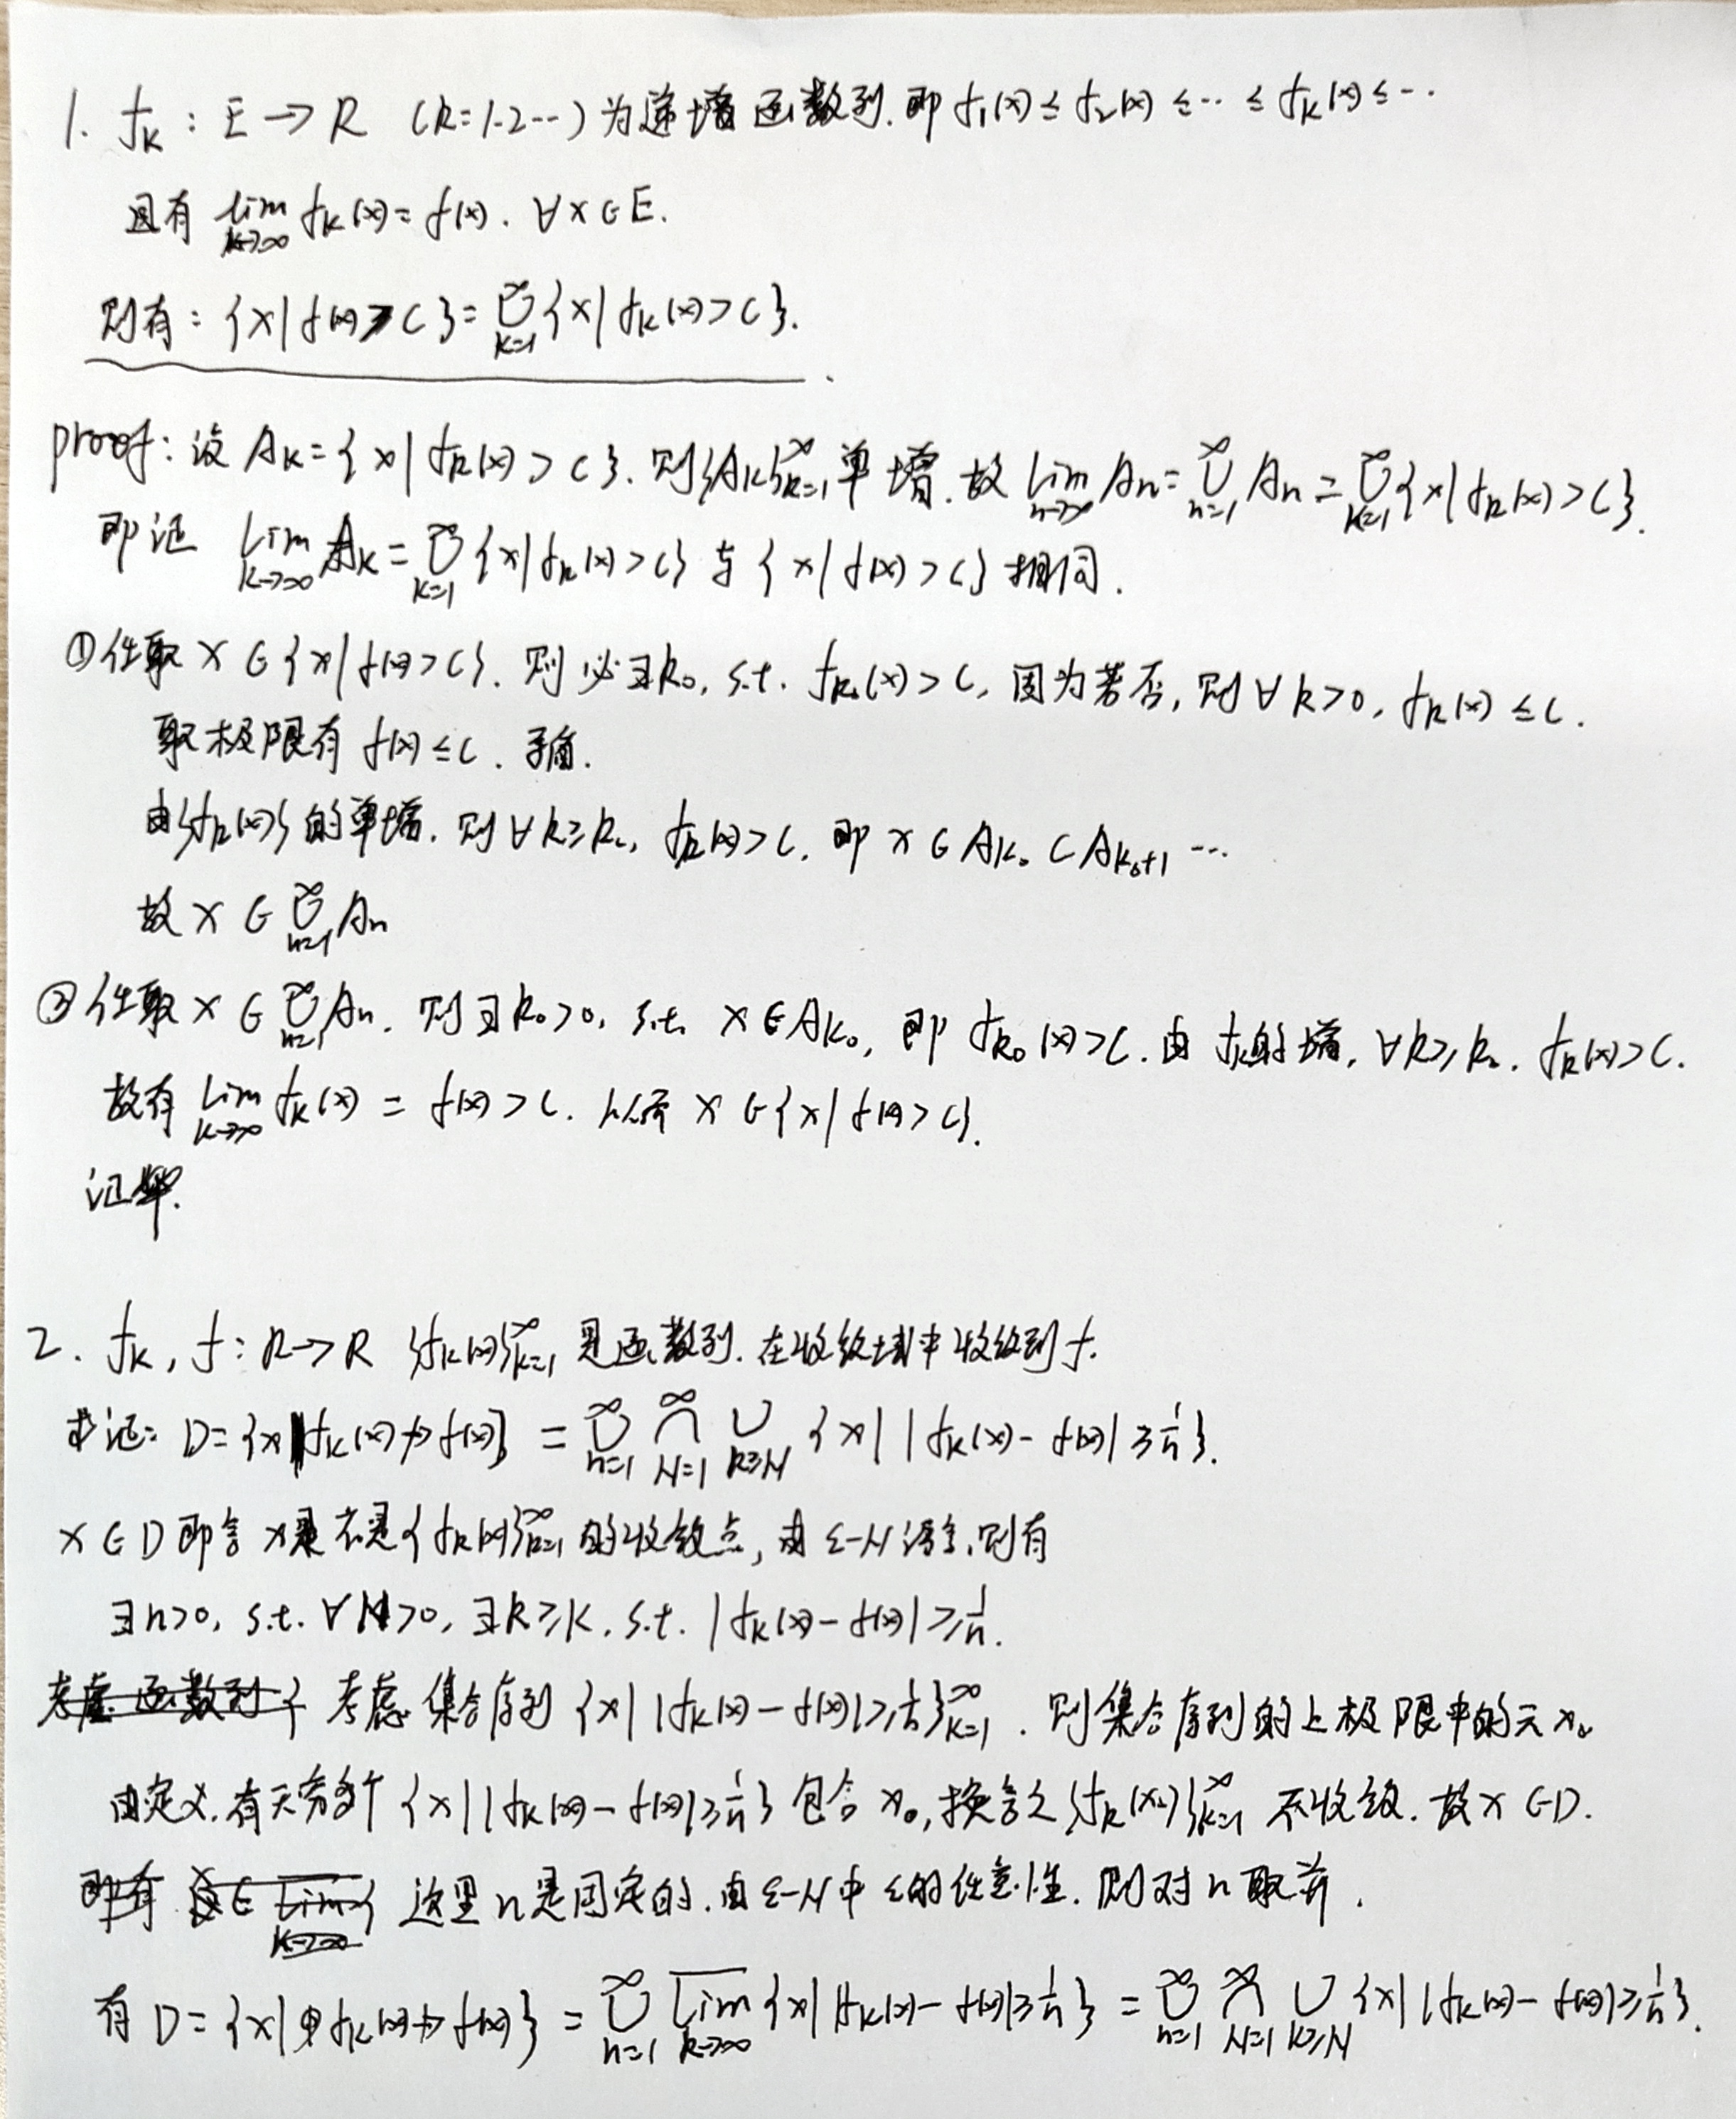 1. f_k : E → R (k=1.2…) 为递增函数列. 即 f_1(x) ≤ f_2(x) ≤ … ≤ f_k(x) ≤ …
且有 lim_{k→∞} f_k(x) = f(x). ∀x∈E.
则有: {x| f(x) > c} = ∪_{k=1}^∞ {x| f_k(x) > c}.
proof: 设 A_k = {x| f_k(x) > c}. 则{A_k}_{k=1}^∞ 单增. 故 lim_{n→∞} A_n = ∪_{n=1}^∞ A_n = ∪_{k=1}^∞ {x| f_k(x) > c}.
即证 lim_{k→∞} A_k = ∪_{k=1}^∞ {x| f_k(x) > c} 与 {x| f(x) > c} 相同.
① 任取 x ∈ {x| f(x) > c}. 则必∃k_0, s.t. f_{k_0}(x) > c, 因为若否, 则∀k>0, f_k(x) ≤ c.
取极限有 f(x) ≤ c. 矛盾.
由{f_k(x)}的单增. 则∀k≥k_0, f_k(x) > c. 即 x ∈ A_{k_0} ⊂ A_{k_0+1} …
故 x ∈ ∪_{n=1}^∞ A_n
② 任取 x ∈ ∪_{n=1}^∞ A_n. 则∃k_0>0, s.t. x ∈ A_{k_0}, 即 f_{k_0}(x) > c. 由 f_k的增, ∀k≥k_0. f_k(x) > c.
故有 lim_{k→∞} f_k(x) = f(x) > c. 从而 x ∈ {x| f(x) > c}.
证毕.
2. f_k, f: R → R {f_k(x)}_{k=1}^∞ 是函数列. 在收敛域中收敛到 f.
求证: D = {x| f_k(x) ↛ f(x)} = ∪_{n=1}^∞ ∩_{N=1}^∞ ∪_{k≥N} {x| |f_k(x) - f(x)| ≥ 1/n}.
x ∈ D 即言 x 不是{f_k(x)}_{k=1}^∞ 的收敛点, 由 ε-N 语言, 则有
∃n>0, s.t. ∀N>0, ∃k≥K, s.t. |f_k(x) - f(x)| ≥ 1/n.
考虑函数列{ 考虑集合序列 {x| |f_k(x) - f(x)| ≥ 1/n}_{k=1}^∞. 则集合序列的上极限中的元 x_0
由定义, 有无穷多个 {x| |f_k(x) - f(x)| ≥ 1/n} 包含 x_0, 换言之{f_k(x_0)}_{k=1}^∞ 不收敛. 故 x ∈ D.
即有 x ∈ \overline{lim}_{k→∞}{ 这里 n 是固定的. 由 ε-N 中 ε 的任意性. 则对 n 取并.
有 D = {x| f_k(x) ↛ f(x)} = ∪_{n=1}^∞ \overline{lim}_{k→∞} {x| |f_k(x) - f(x)| ≥ 1/n} = ∪_{n=1}^∞ ∩_{N=1}^∞ ∪_{k≥N} {x| |f_k(x) - f(x)| ≥ 1/n}.